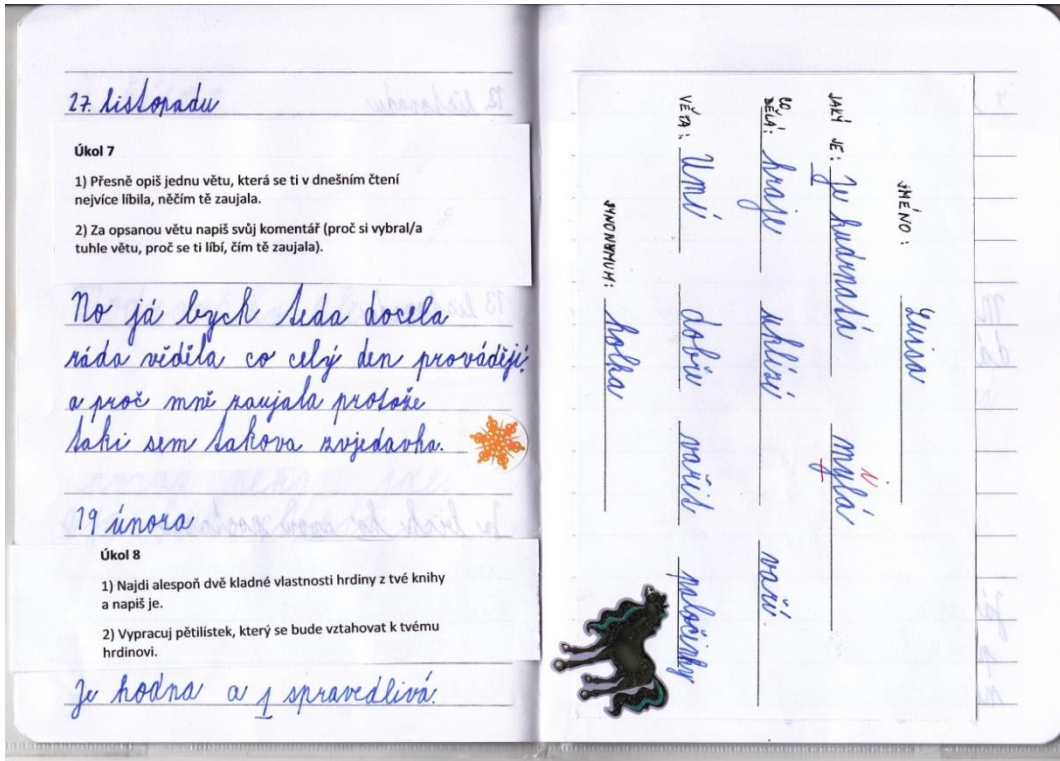 27. listopadu
Úkol 7
1) Přesně opiš jednu větu, která se ti v dnešním čtení
nejvíce líbila, něčím tě zaujala.
2) Za opsanou větu napiš svůj komentář (proč si vybral/a
tuhle větu, proč se ti líbí, čím tě zaujala).
No já bych teda docela
ráda viděla co celý den provádějí.
a proč mně zaujala protože
taki sem takova zvjedavka.
19 února
Úkol 8
1) Najdi alespoň dvě kladné vlastnosti hrdiny z tvé knihy
a napiš je.
2) Vypracuj pětilístek, který se bude vztahovat k tvému
hrdinovi.
Je hodna a spravedlivá.
JMÉNO: Luisa
JAKÝ JE: Je kudrnatá mylá
i
CO DĚLÁ: hraje uklízí vaří
VĚTA: Umí dobře vařit paločinky
SYNONYMUM: holka